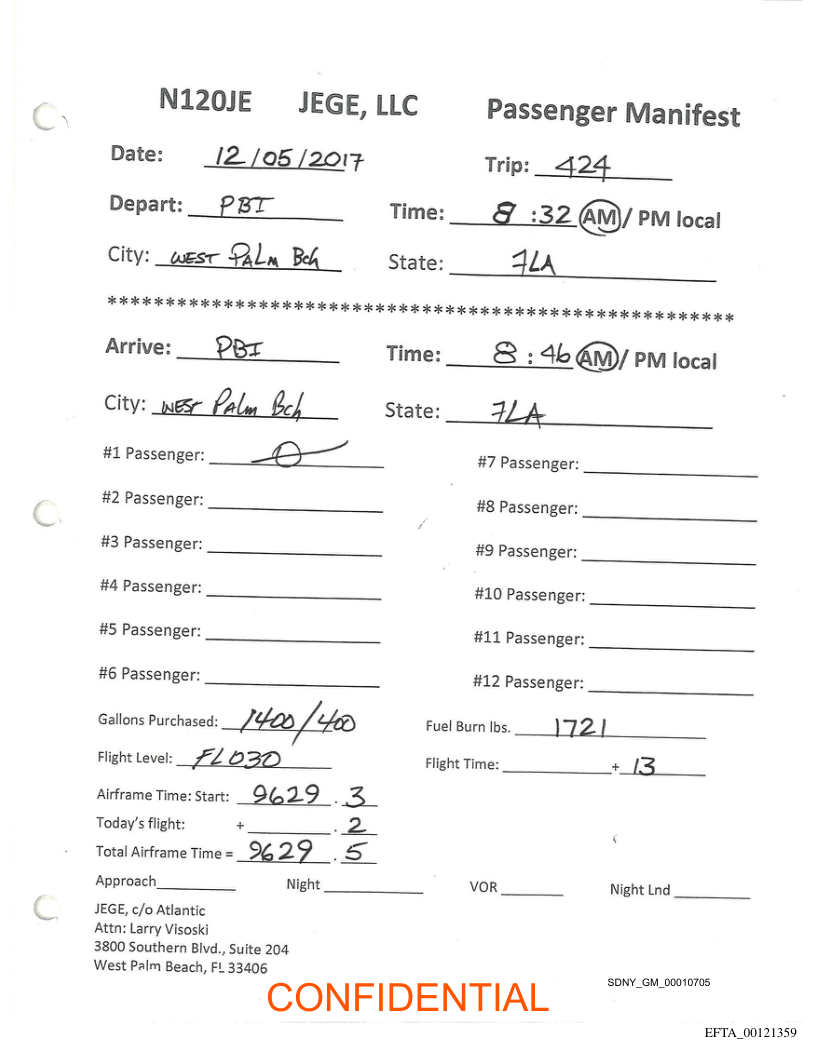 N120JE JEGE, LLC Passenger Manifest
Date: 12/05/2017 Trip: 424
Depart: PBI Time: 8:32 AM/ PM local
City: WEST PALM Bch State: FLA
******************************************************
Arrive: PBI Time: 8:46 AM/ PM local
City: WEST PALM Bch State: FLA
#1 Passenger: #7 Passenger:
#2 Passenger: #8 Passenger:
#3 Passenger: #9 Passenger:
#4 Passenger: #10 Passenger:
#5 Passenger: #11 Passenger:
#6 Passenger: #12 Passenger:
Gallons Purchased: 1400/400 Fuel Burn lbs. 1721
Flight Level: FL030 Flight Time: + 13
Airframe Time: Start: 9629.3
Today's flight: + .2
Total Airframe Time = 9629.5
Approach Night VOR Night Lnd
JEGE, c/o Atlantic
Attn: Larry Visoski
3800 Southern Blvd., Suite 204
West Palm Beach, FL 33406
SDNY_GM_00010705
CONFIDENTIAL
EFTA_00121359